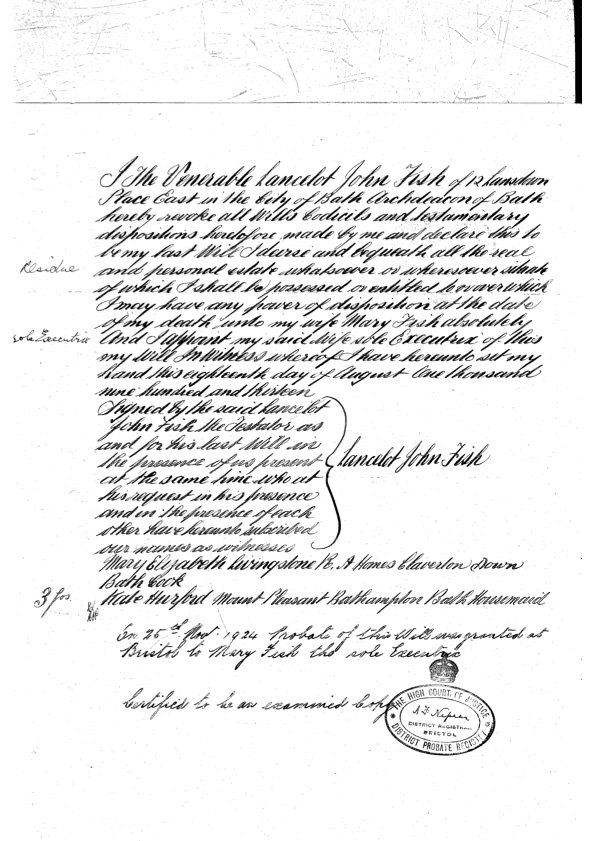 I The Venerable Lancelot John Fish of 12 Lansdown
Place East in the City of Bath Archdeacon of Bath
hereby revoke all Wills Codicils and testamentary
dispositions heretofore made by me and declare this to
be my last Will I devise and bequeath all the real
Residue
and personal estate whatsoever or wheresoever situate
of which I shall be possessed or entitled to or over which
I may have any power of disposition at the date
of my death unto my wife Mary Fish absolutely
sole Executrix
And I appoint my said Wife sole Executrix of this
my Will In Witness whereof I have hereunto set my
hand this eighteenth day of August One thousand
nine hundred and thirteen
Signed by the said Lancelot
John Fish the Testator as
and for his last Will in
the presence of us present
at the same time who at
his request in his presence
and in the presence of each
other have hereunto subscribed
our names as witnesses
Lancelot John Fish
Mary Elizabeth Livingstone R. A Homes Claverton Down
Bath Cook
3 fos.
Kate Hurford Mount Pleasant Bathampton Bath Housemaid
On 25th Nov. 1924 Probate of this Will was granted at
Bristol to Mary Fish the sole Executrix
Certified to be an examined Copy
THE HIGH COURT OF JUSTICE
DISTRICT REGISTRAR
BRISTOL
DISTRICT PROBATE REGISTRY